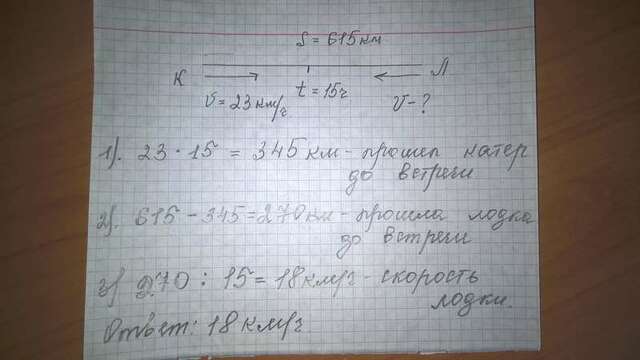 S = 615 км
К Л
t = 15ч
V = 23 км/ч V - ?
1). 23 · 15 = 345 км - прошел катер
до встречи
2). 615 - 345 = 270 км - прошла лодка
до встречи
3) 270 : 15 = 18 км/ч - скорость
лодки.
Ответ: 18 км/ч.